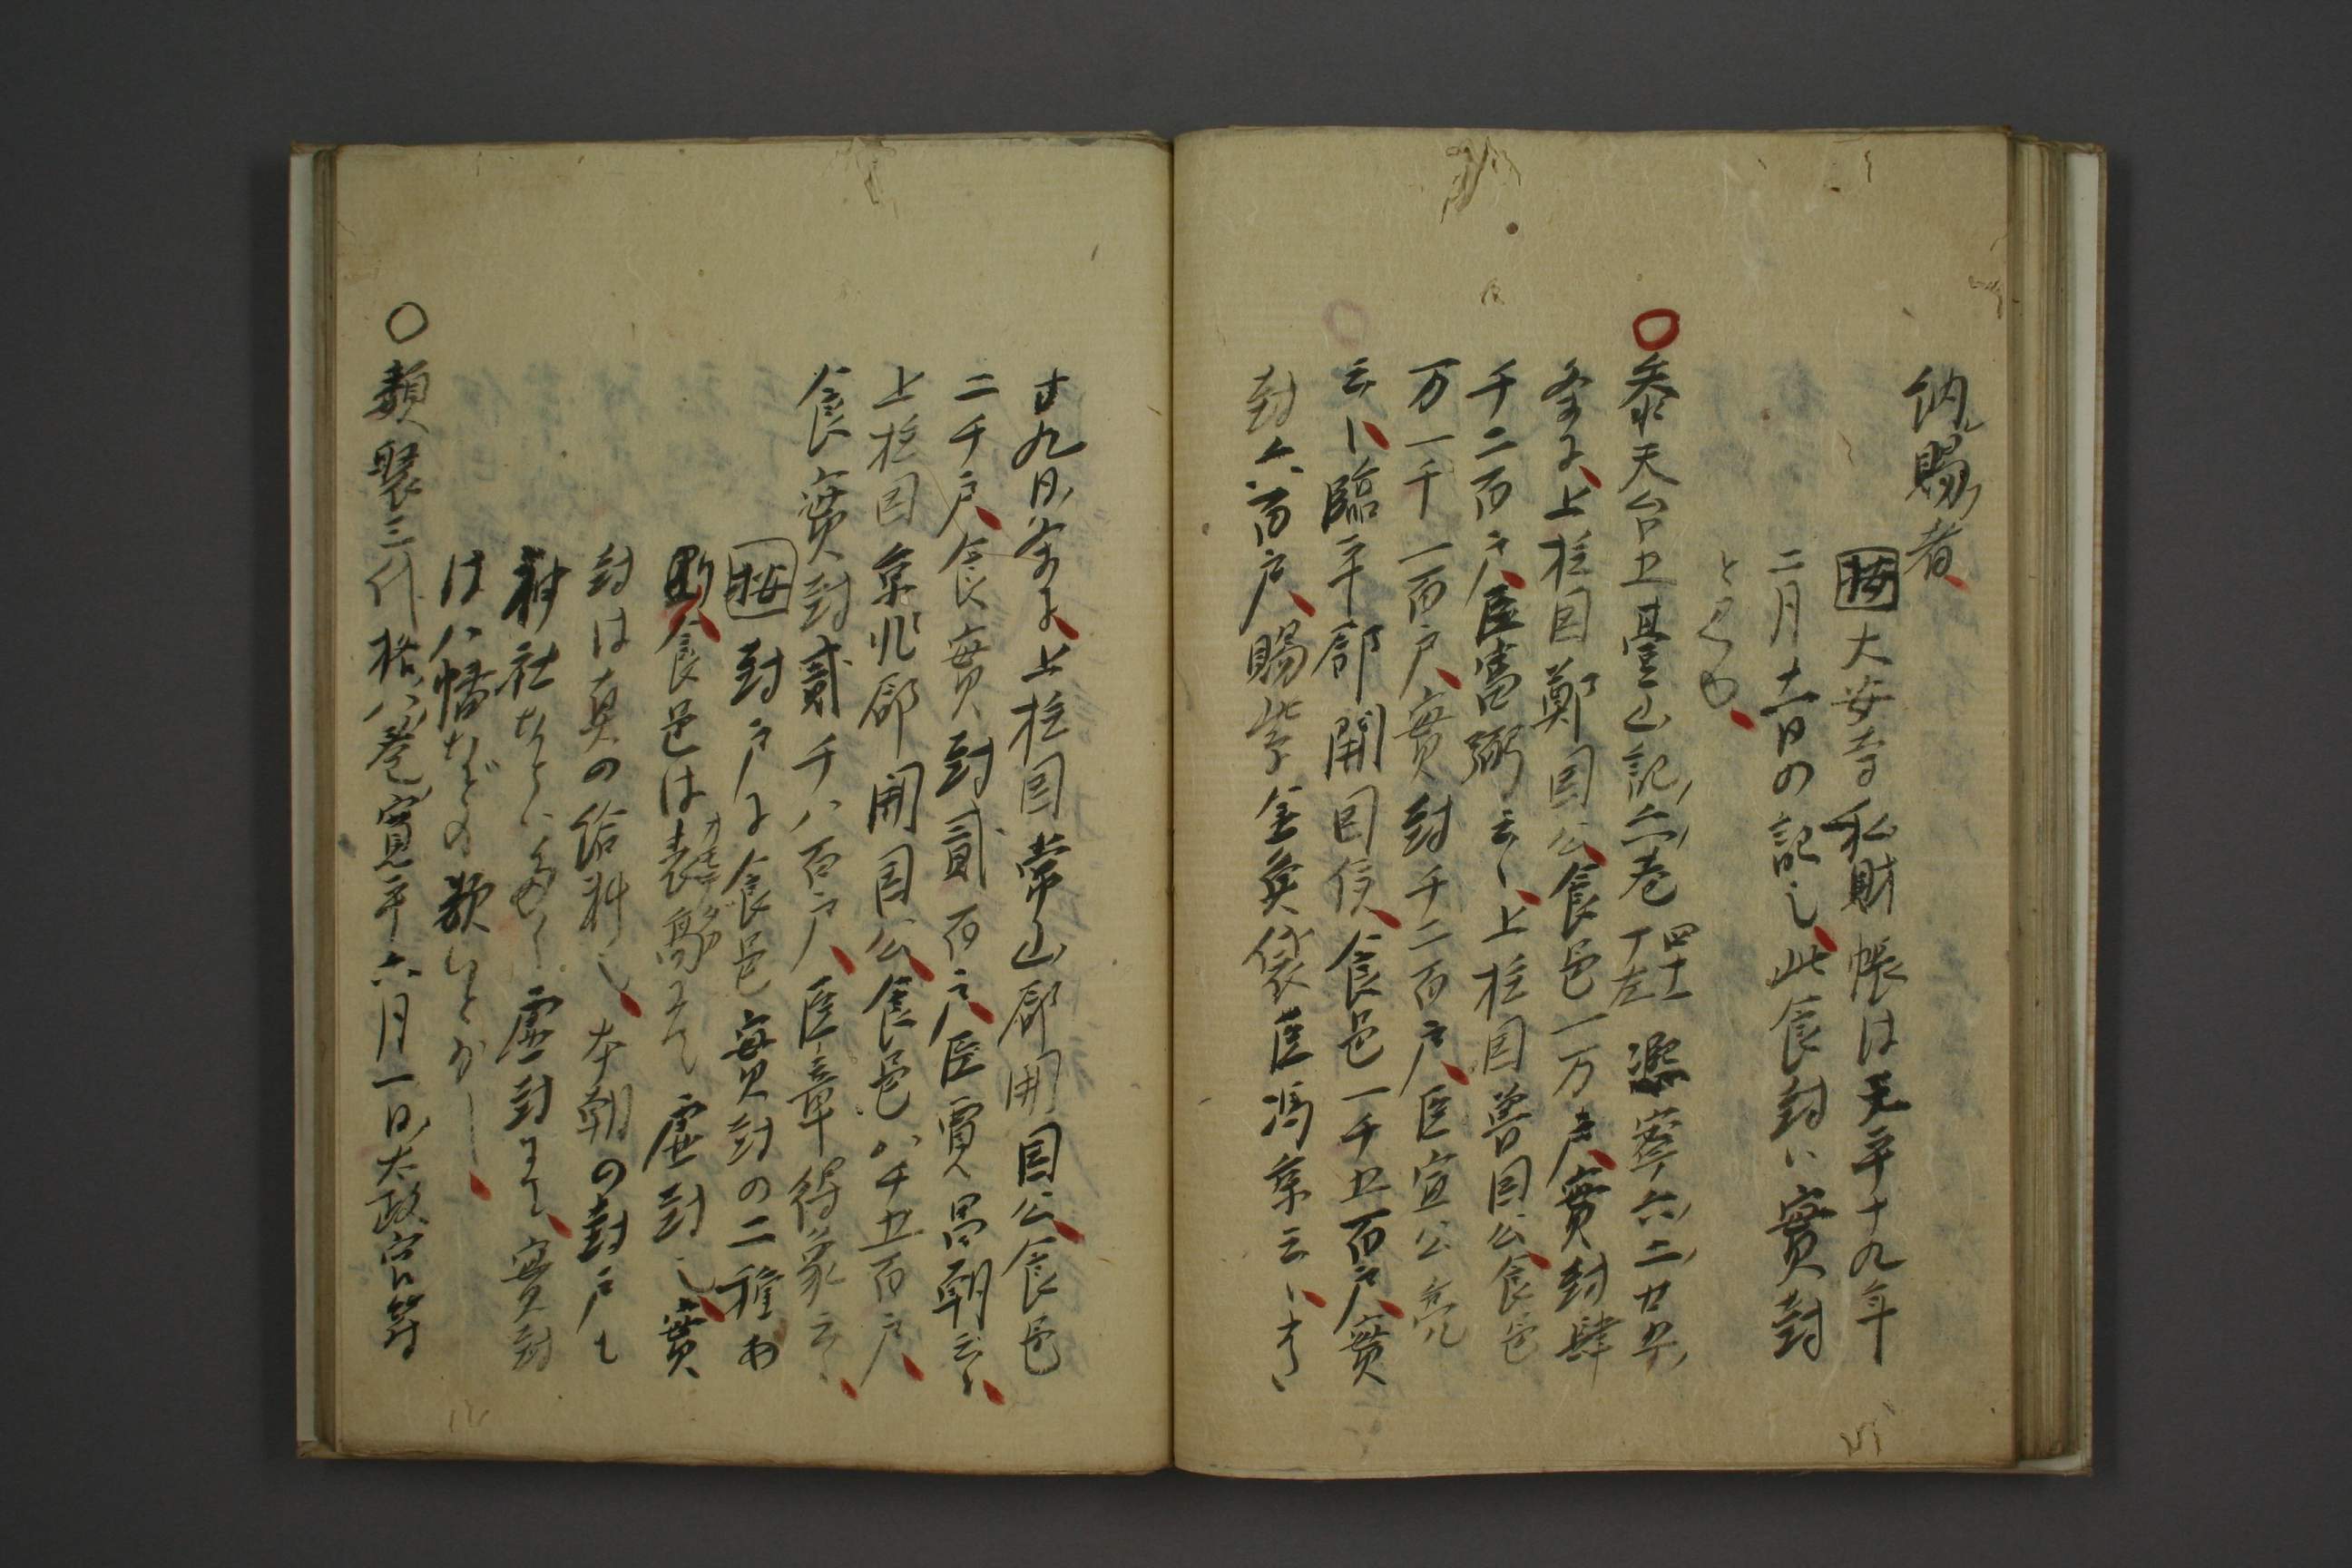 納賜者
按大安寺私財帳は天平十九年
二月十一日の記也此食封ハ實封
とみゆ
○参天台五臺山記六巻四十一丁左熈寧六二廿五
条に上柱国鄭国公食邑一万戸實封肆
千二百戸臣富弼云〻上柱国魯国公食邑
万一千一百戸實封千二百戸臣宣公亮
云〻臨平郡開国侯食邑一千五百戸實
封六百戸賜紫金魚袋臣馮京云〻
廿九日条に上柱国常山郡開国公食邑
二千戸食實封貳百戸臣賈昌朝云〻
上柱国京兆郡開国公食邑八千五百戸
食實封貳千八百戸臣章得象云〻
按封戸に食邑實封の二種あ
食邑は虚封也實
封は真の給料也本朝の封戸も
神社なとハ多く虚封にて實封
は八幡などの類いとかし
○類聚三代格八巻寛平六月一日太政官符